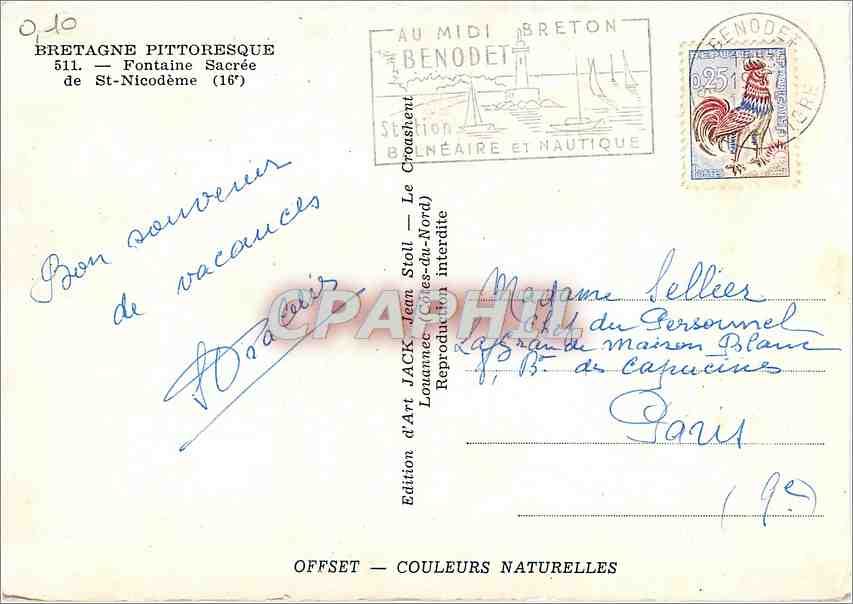 0,10
BRETAGNE PITTORESQUE
511. — Fontaine Sacrée
de St-Nicodème (16e)
AU MIDI BRETON
BENODET
Station
BALNÉAIRE ET NAUTIQUE
BENODET
0,25
Bon souvenir
de vacances
Edition d'Art JACK Jean Stoll — Le Croashent
Louannec (Côtes-du-Nord)
Reproduction interdite
CPAPHIL
Madame Sellier
Chef du Personnel
La Grande Maison Blanc
8, Bd des Capucines
Paris
(9e)
OFFSET — COULEURS NATURELLES